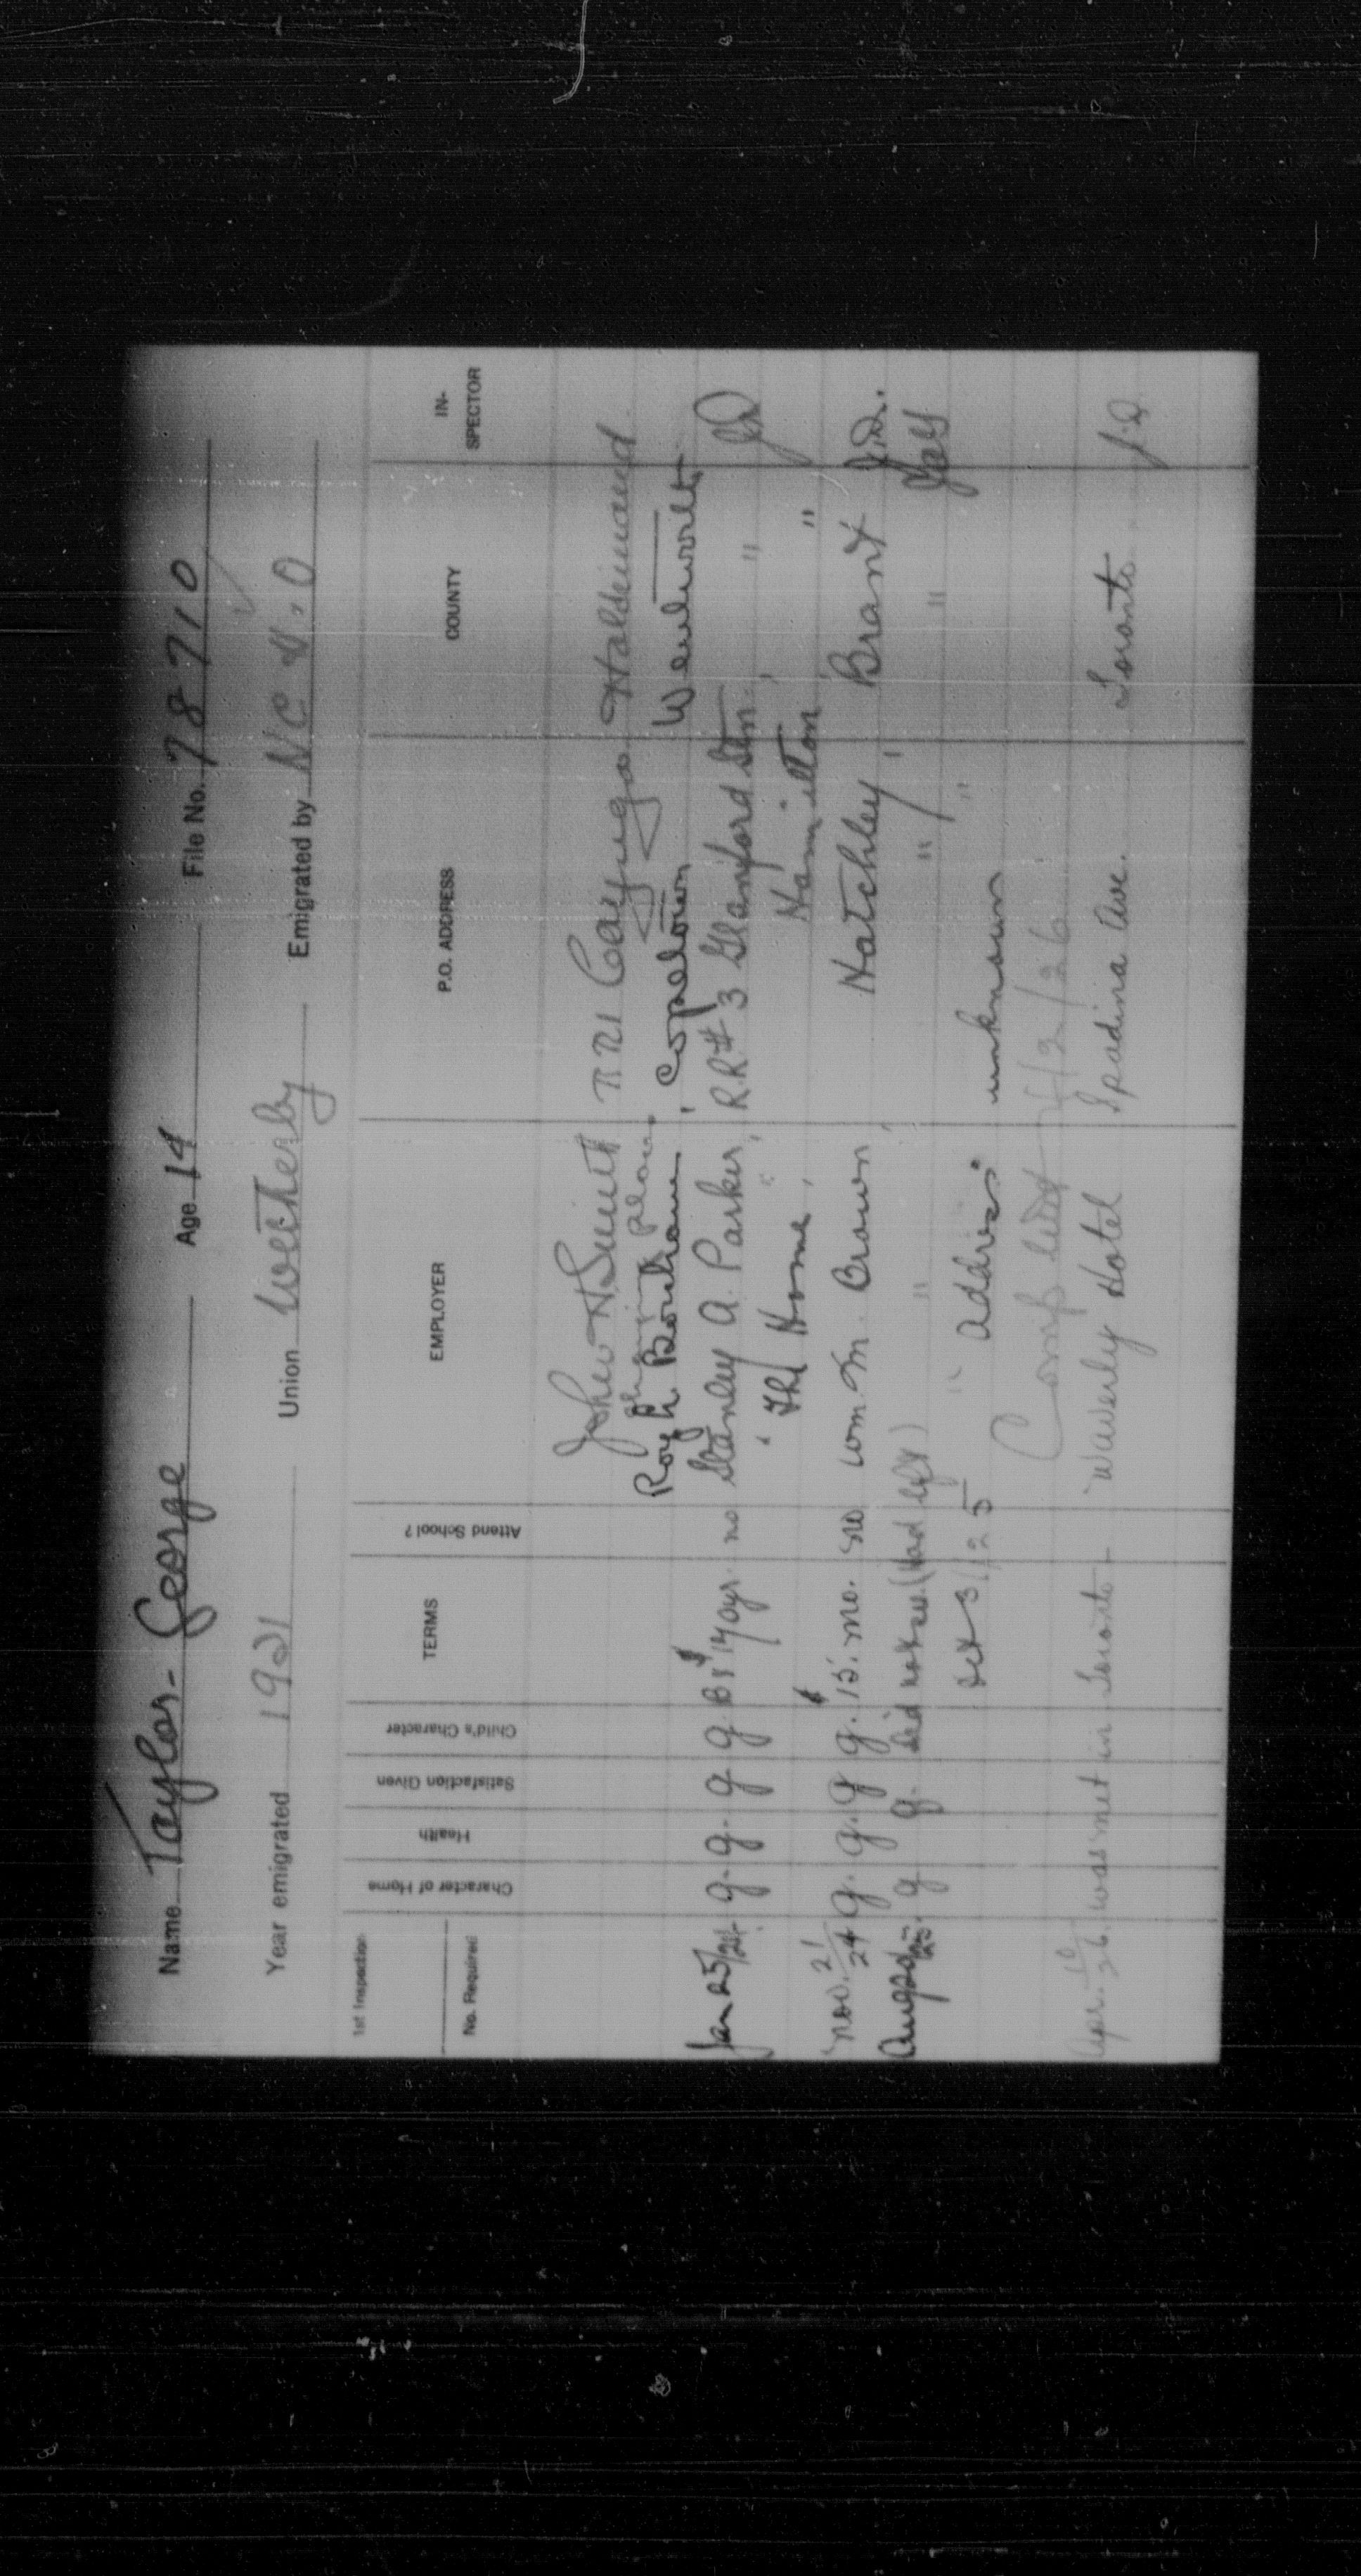 Name Taylor - George Age 14 File No. 78710
Year emigrated 1921 Union Wetherby Emigrated by N C H. O
1st Inspection
No. Required
Character of Home
Health
Satisfaction Given
Child's Character
TERMS
Attend School?
EMPLOYER
P.O. ADDRESS
COUNTY
IN-SPECTOR
John H Smith RR1 Cayuga Haldimand
changing place
Roy Bonham, Copetown Wentworth
Jan 25/24. g. g. g g. $ yr. no Stanley A. Parker, R.R.# 3 Glanford Stn. " JD
The Home, Hamilton "
Nov. 21/24 g. g. g g. $15. mo. no Wm. M. Brown Hatchley Brant J.D.
Aug 20/25. g g. did not see (Had left) " " "
Oct 31/25 " Address unknown "
Comp 26
Apr. 26. was met in Toronto - Waverly Hotel Spadina Ave. Toronto J.D